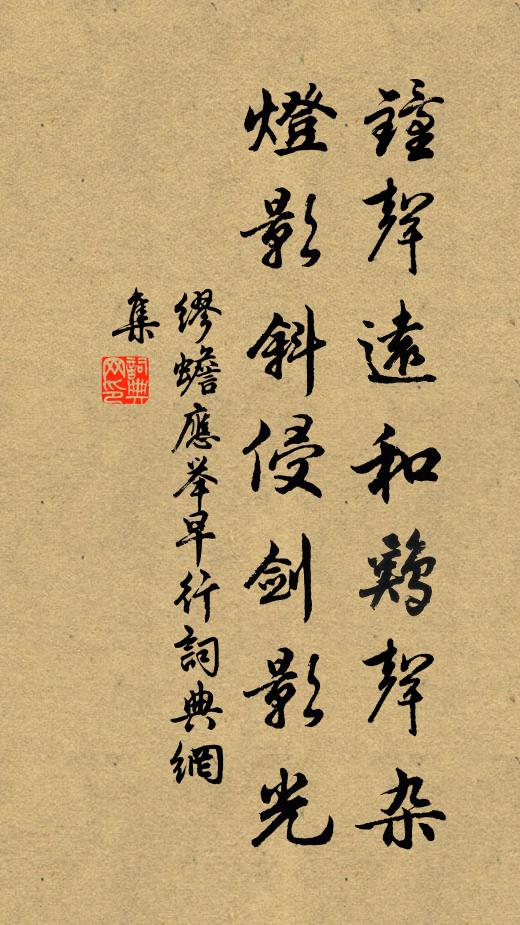 鐘聲遠和鷄聲杂
燈影斜侵劍影光
繆蟾應举早行詞典網
集
詞典
网印